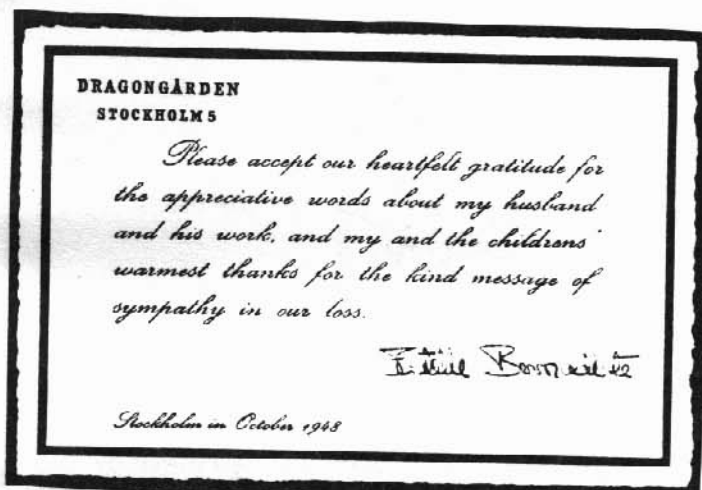 DRAGONGÅRDEN
STOCKHOLM 5
Please accept our heartfelt gratitude for
the appreciative words about my husband
and his work, and my and the childrens'
warmest thanks for the kind message of
sympathy in our loss.
Stockholm in October 1948